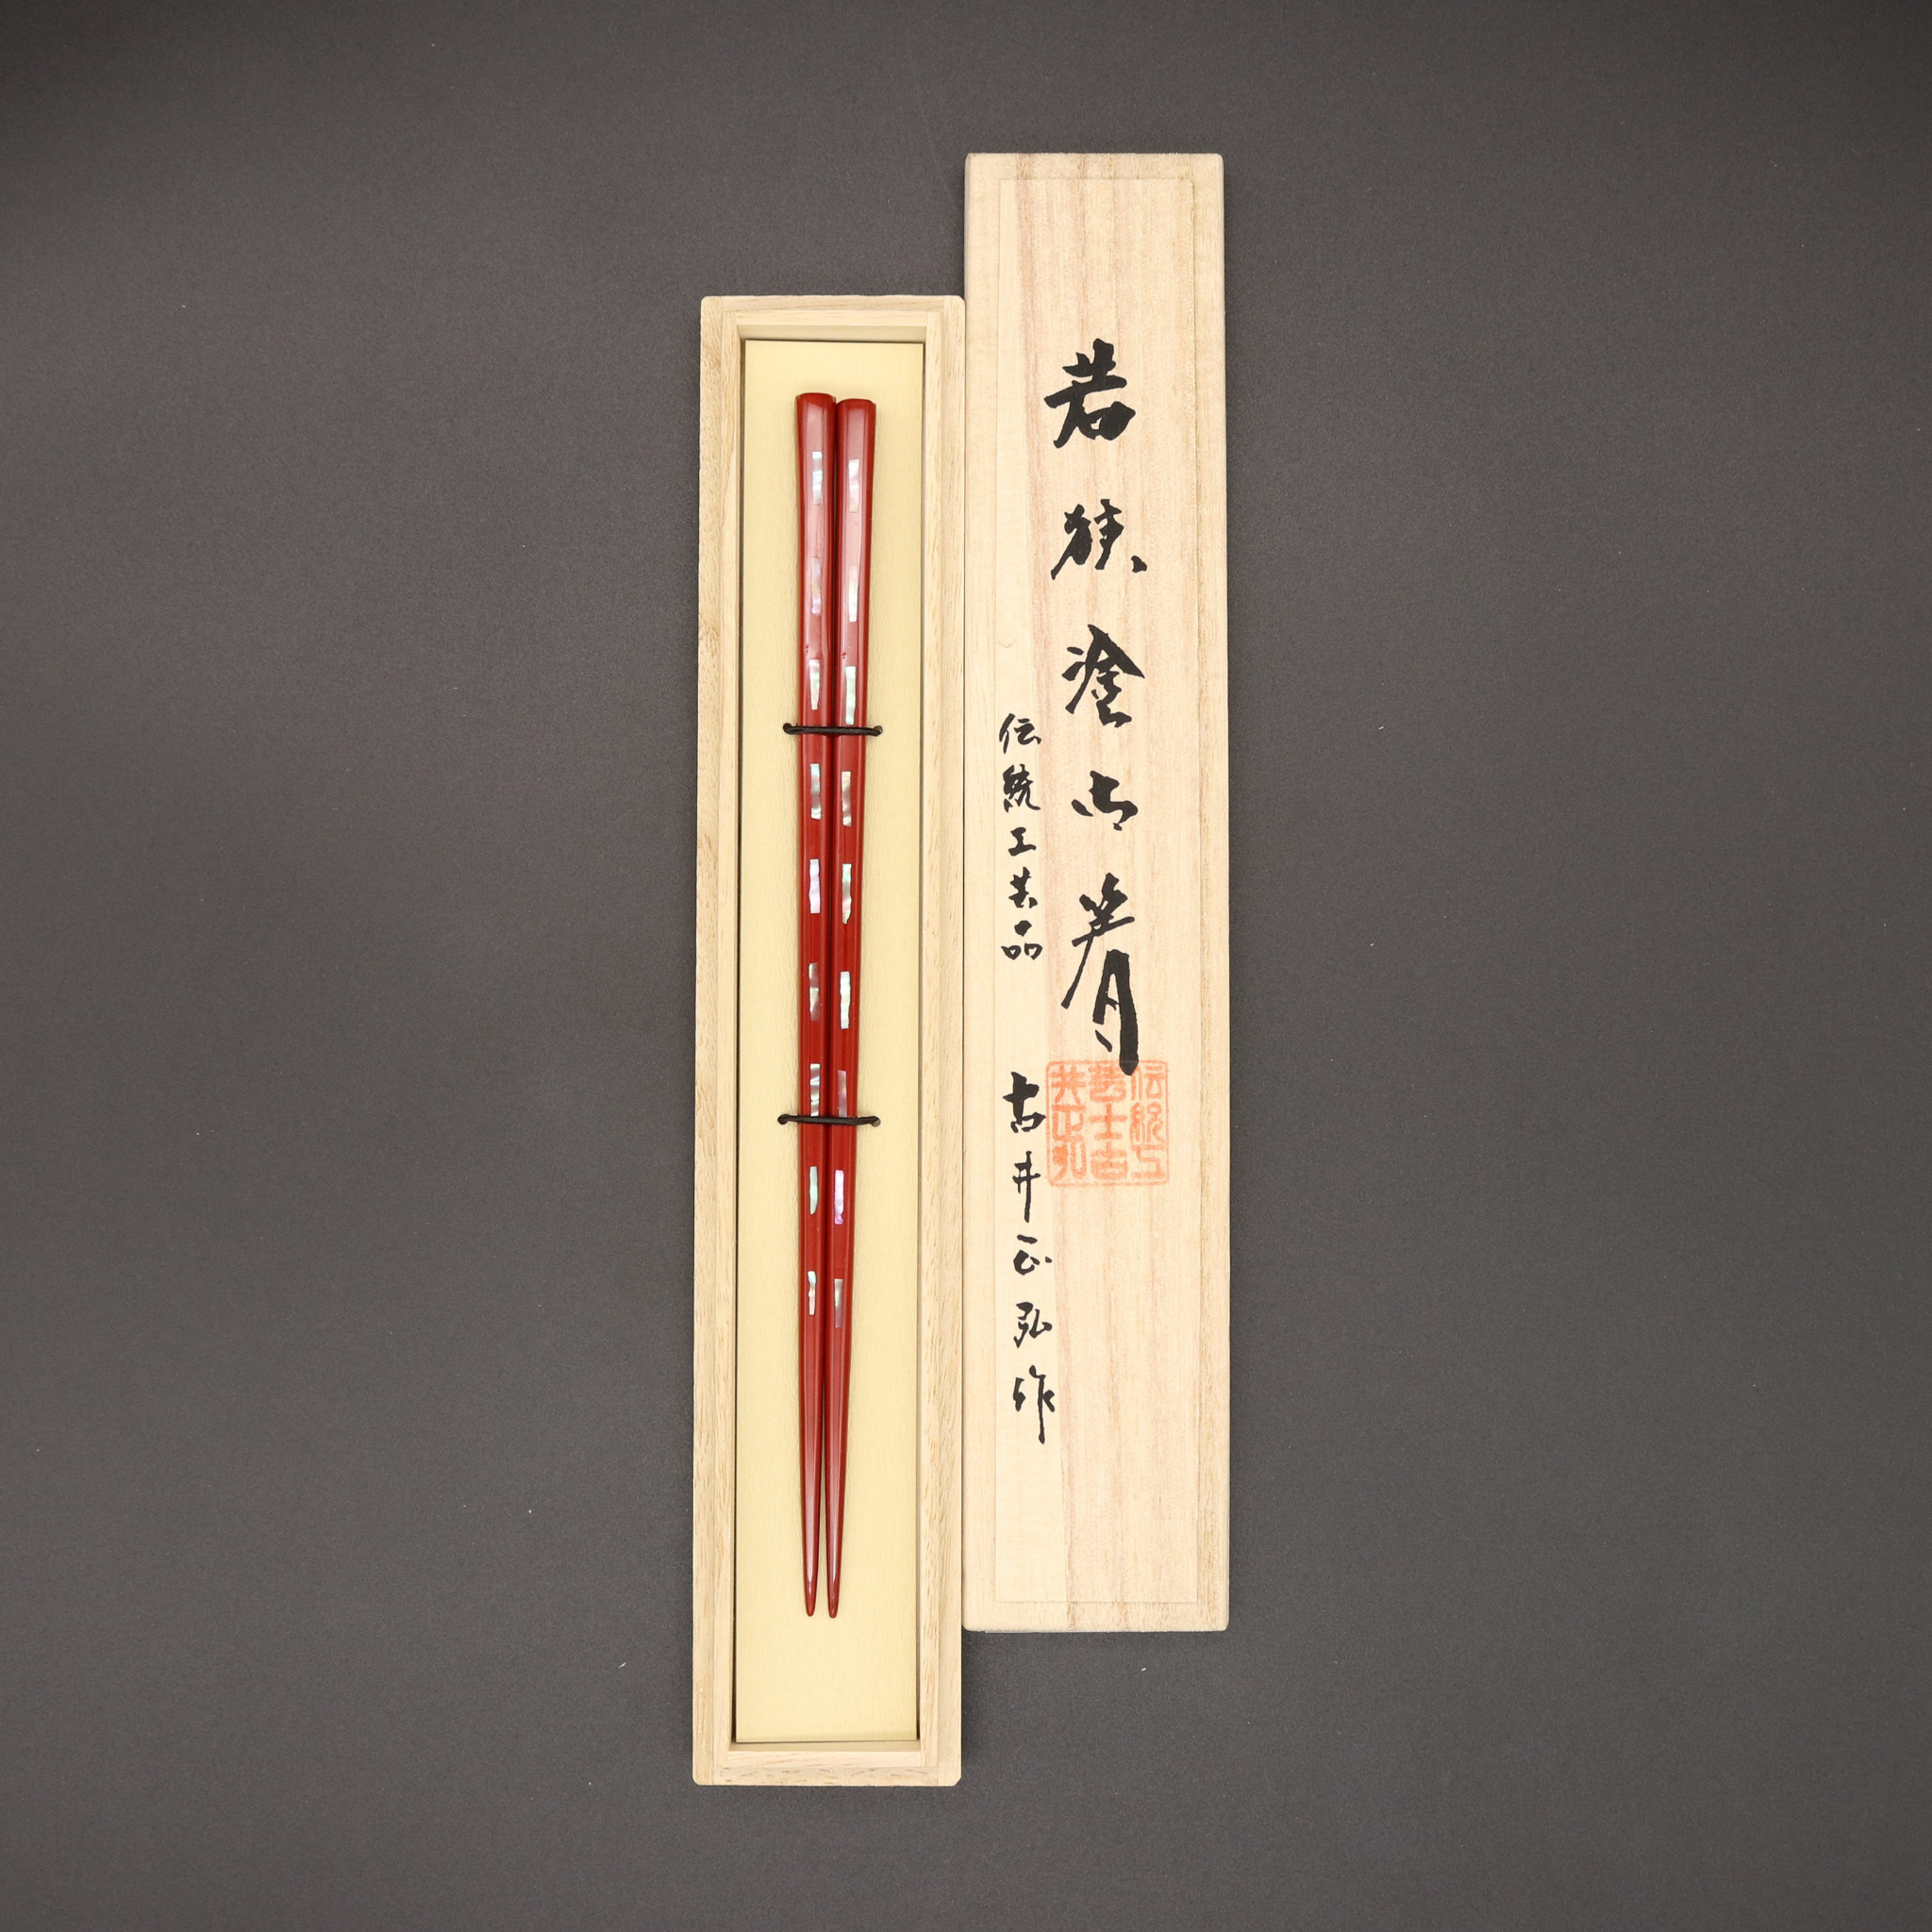 若狭塗お箸
伝統工芸品 古井正弘作
伝統工
芸士古
井正弘